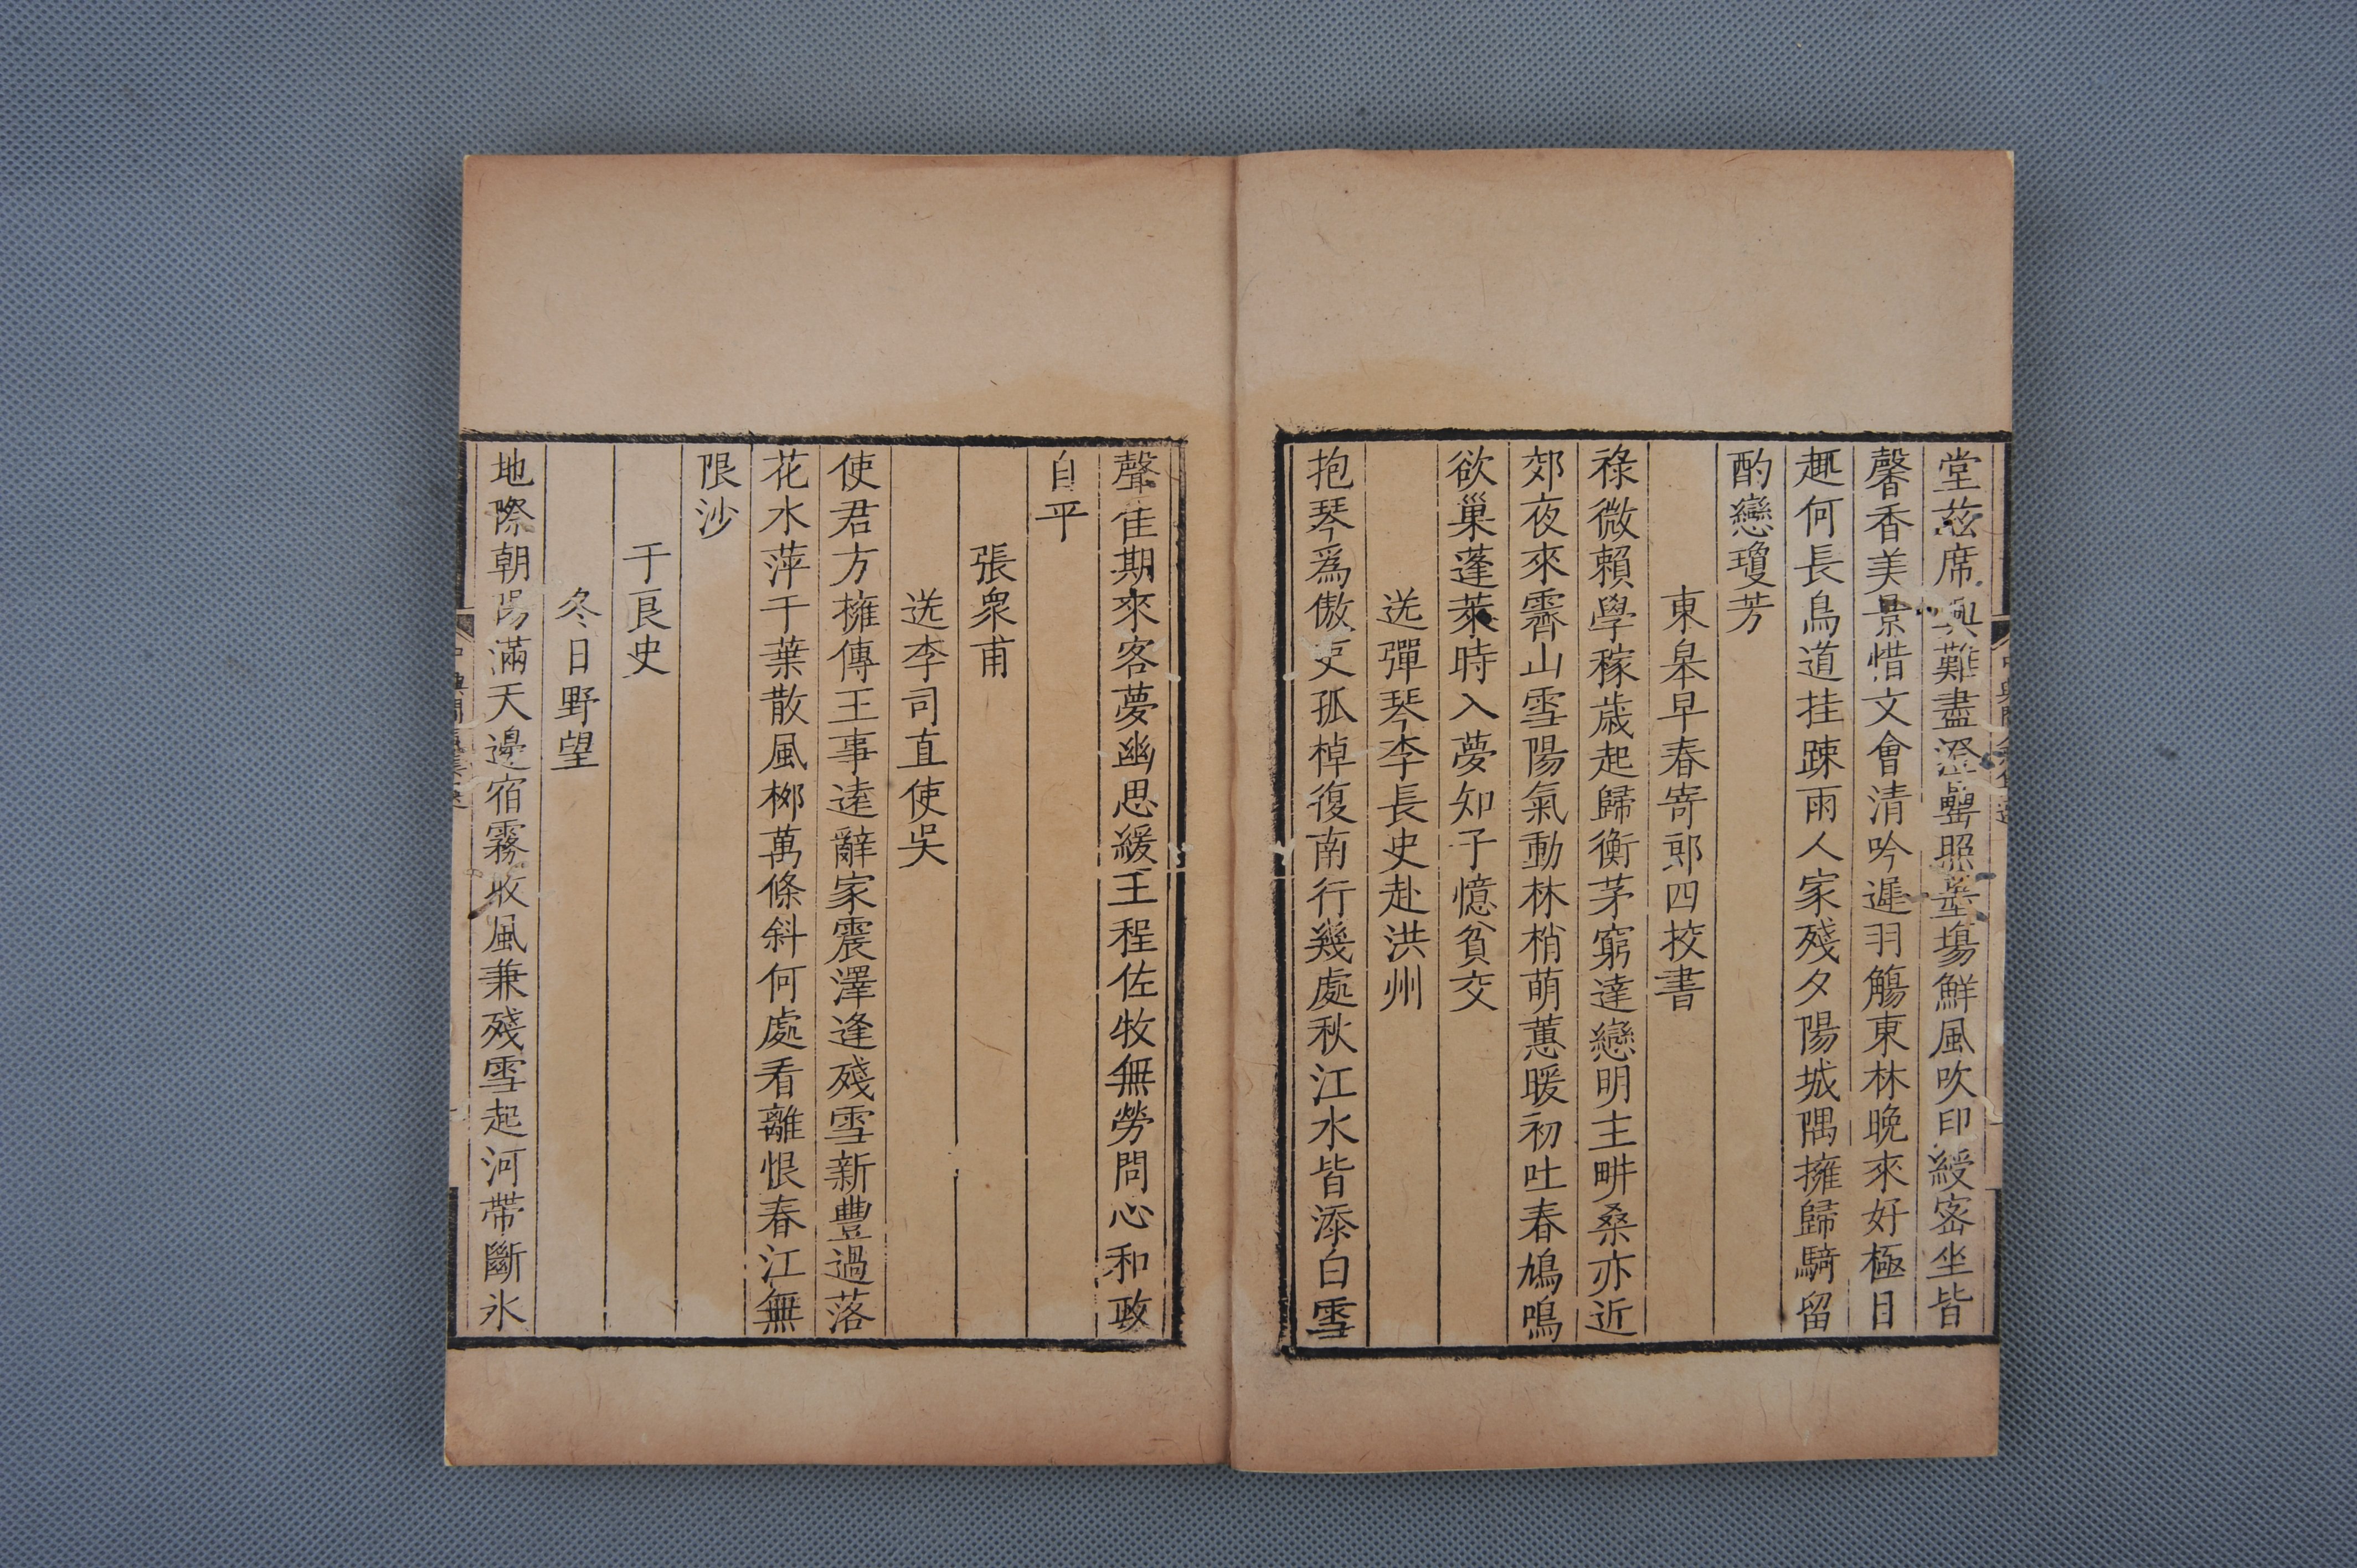 堂茲席興難盡澄罍照墨場鮮風吹印綬密坐皆
馨香美景惜文會清吟遲羽觴東林晚來好極目
趣何長鳥道挂踈雨人家殘夕陽城隅擁歸騎留
酌戀瓊芳
東皋早春寄郎四挍書
祿微賴學稼歳起歸衡茅窮達戀明主畊桑亦近
郊夜來霽山雪陽氣動林梢萌蕙暖初吐春鳩鳴
欲巢蓬萊時入夢知子憶貧交
送彈琴李長史赴洪州
抱琴爲傲吏孤棹復南行幾處秋江水皆添白雪
聲佳期來客夢幽思緩王程佐牧無勞問心和政
自平
張衆甫
送李司直使吳
使君方擁傳王事逺辭家震澤逢殘雪新豐過落
花水萍千葉散風桞萬條斜何處看離恨春江無
限沙
于良史
冬日野望
地際朝陽滿天邊宿霧收風兼殘雪起河帶斷氷